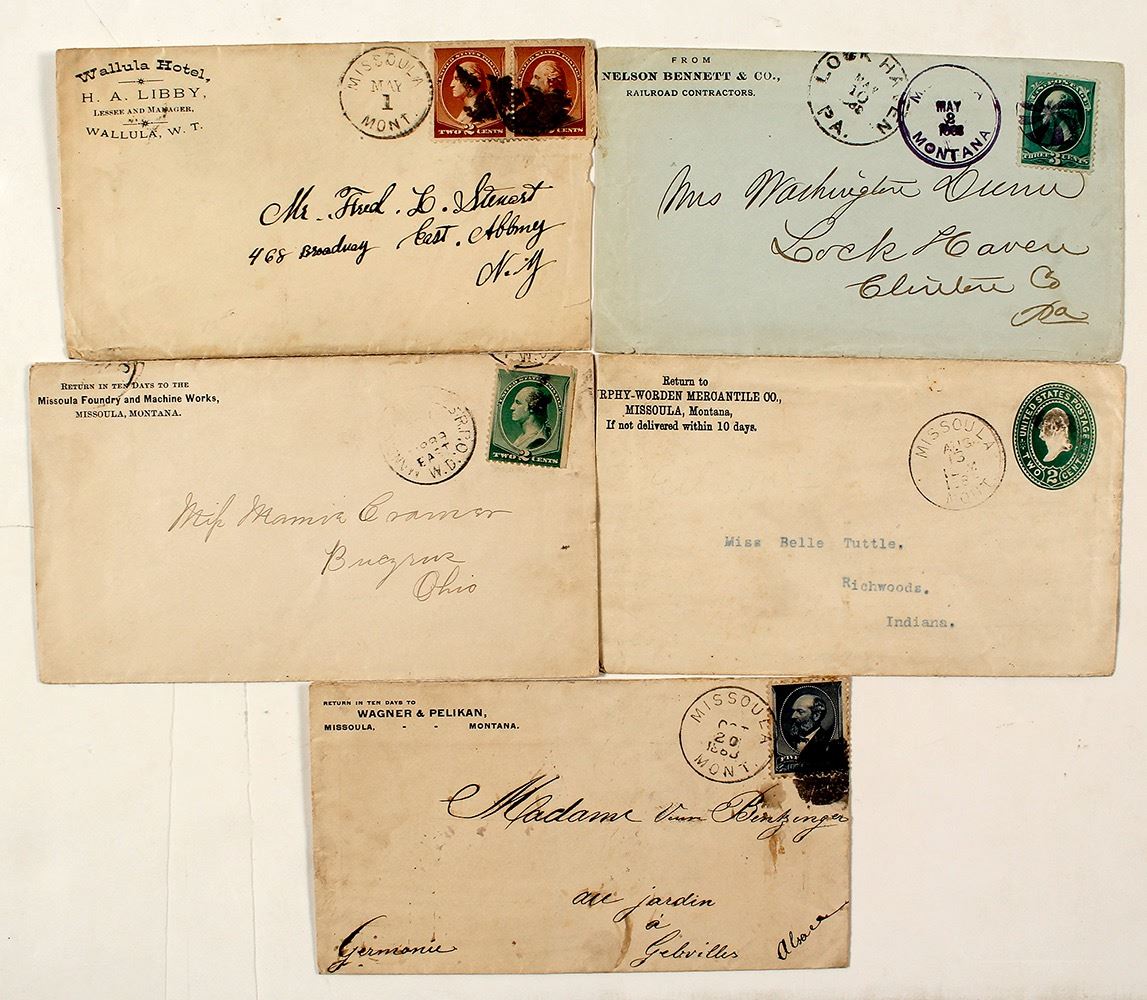 Wallula Hotel,
H. A. LIBBY,
LESSEE AND MANAGER,
WALLULA, W. T.
MISSOULA
MAY
1
MONT
TWO 2 CENTS
Mr. Fred. L. Stewart
468 Broadway East. Albany
N.Y
FROM
NELSON BENNETT & CO.,
RAILROAD CONTRACTORS.
LOCK HAVEN
MAY
10
PA.
MAY
8
MONTANA
THREE 3 CENTS
Mrs Washington Dunn
Lock Haven
Clinton Co
Pa
RETURN IN TEN DAYS TO THE
Missoula Foundry and Machine Works,
MISSOULA, MONTANA.
R.P.O.
EAST
W.D.
UNITED STATES POSTAGE
TWO 2 CENTS
Miss Mamie Cramer
Bucyrus
Ohio
Return to
RPHY-WORDEN MERCANTILE CO.,
MISSOULA, Montana,
If not delivered within 10 days.
MISSOULA
AUG
MONT
UNITED STATES POSTAGE
TWO 2 CENTS
Miss Belle Tuttle,
Richwoods.
Indiana.
RETURN IN TEN DAYS TO
WAGNER & PELIKAN,
MISSOULA, - - MONTANA.
MISSOULA
20
MONT.
Madame Bintzinger
au jardin
à
Gebvilles
Germanie
Alsace